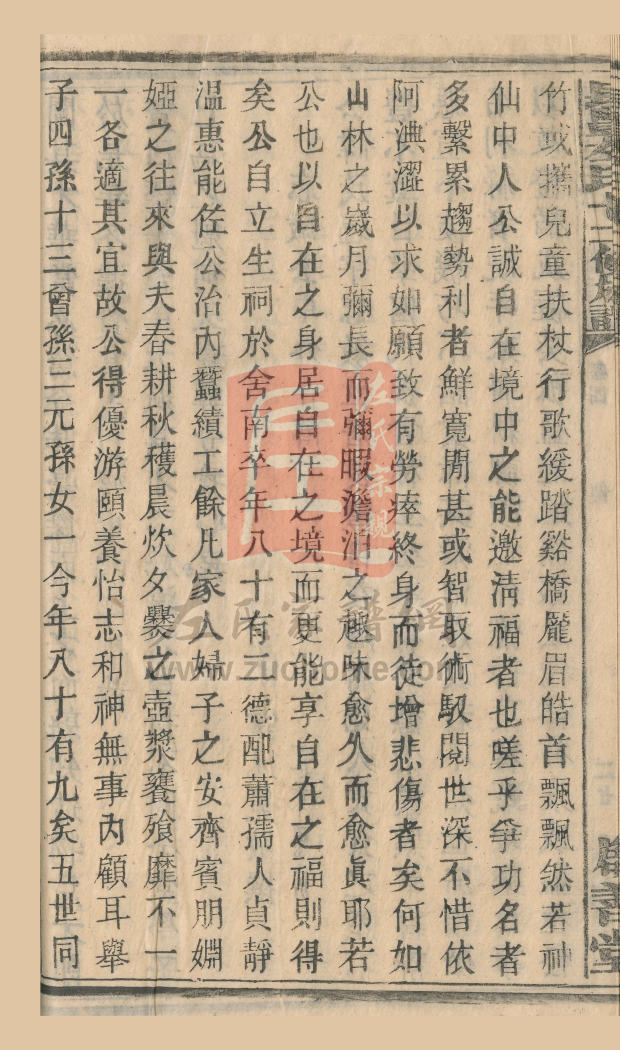 竹或攜兒童扶杖行歌緩踏谿橋龐眉皓首飄飄然若神
仙中人公誠自在境中之能邀清福者也嗟乎爭功名者
多繫累趨勢利者鮮寬閒甚或智馭術馭閱世深不惜依
阿淟澀以求如願致有勞瘁終身而徒增悲傷者矣何如
山林之歲月彌長而彌暇澹泊之趣味愈久而愈眞耶若
公也以自在之身居自在之境而更能享自在之福則得
矣公自立生祠於舍南卒年八十有二德配蕭孺人貞靜
溫惠能佐公治內蠶績工餘凡家人婦子之安齊賓朋婣
婭之往來與夫春耕秋穫晨炊夕爨之壺漿饔飱靡不一
一各適其宜故公得優游頤養怡志和神無事內顧耳舉
子四孫十三曾孫三元孫女一今年八十有九矣五世同
卷四
二七
左氏宗親
左氏家譜網
www.zuozhome.com